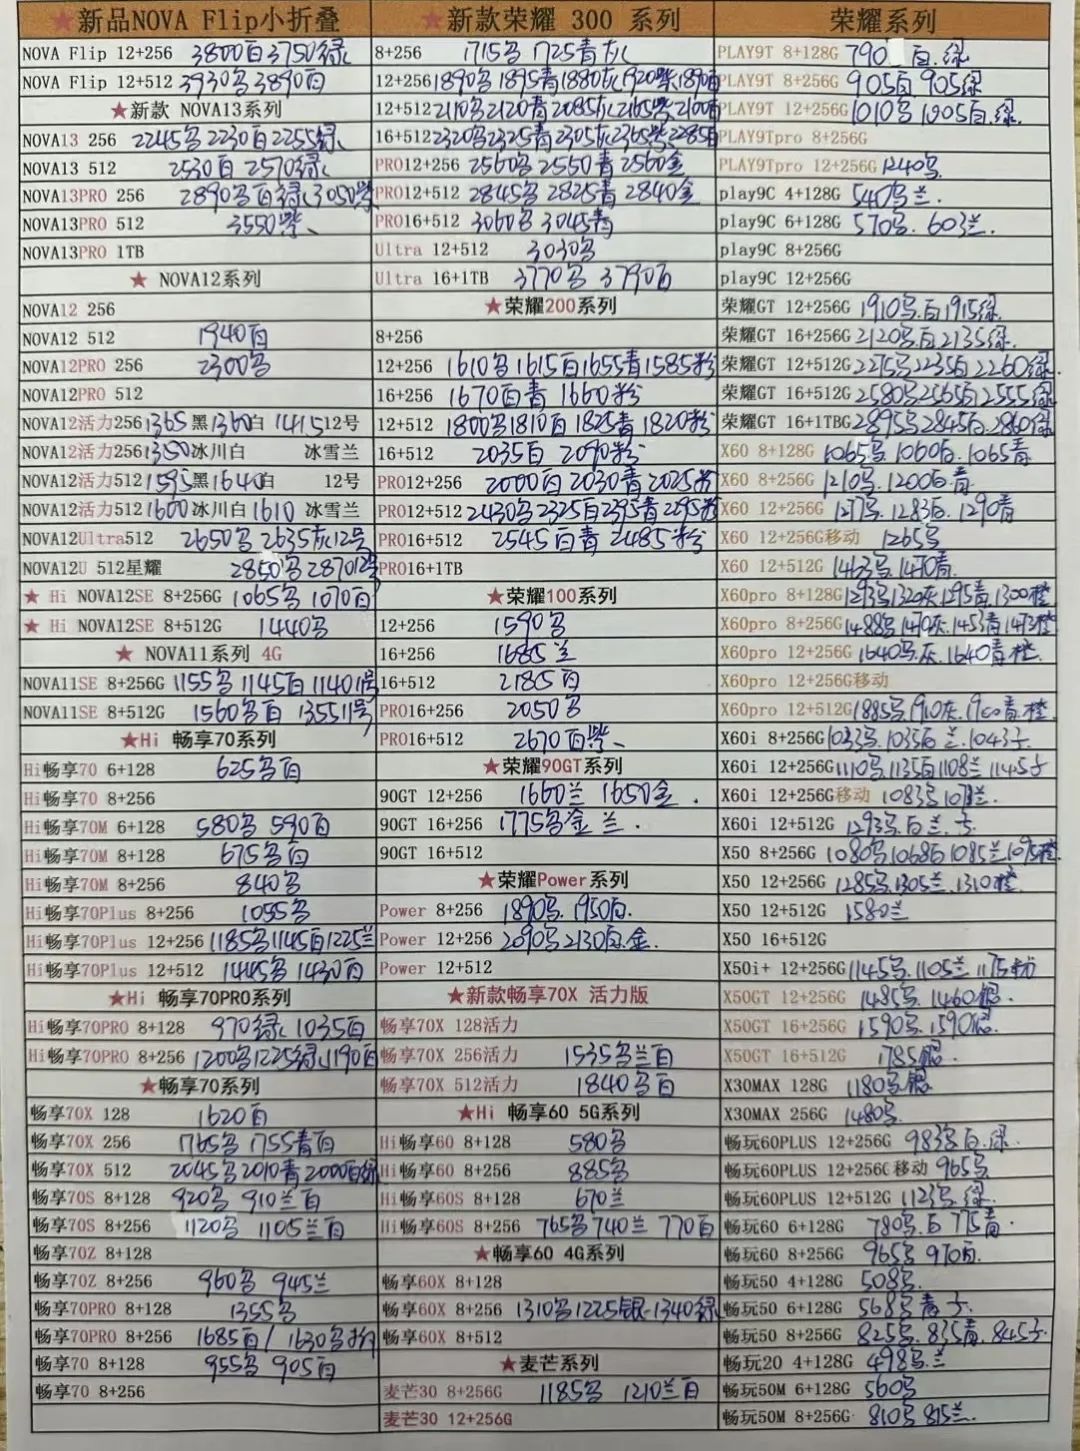 ★新品NOVA Flip小折叠
NOVA Flip 12+256 3800白3750绿
NOVA Flip 12+512 3930写3890白
★新款 NOVA13系列
NOVA13 256 2245写2230白2255绿
NOVA13 512 2530白 2570绿
NOVA13PRO 256 2890写白绿3050紫
NOVA13PRO 512 3550紫
NOVA13PRO 1TB
★ NOVA12系列
NOVA12 256
NOVA12 512 1940白
NOVA12PRO 256 2300写
NOVA12PRO 512
NOVA12活力256 1365黑1360白 1415 12号
NOVA12活力256 1350冰川白 冰雪兰
NOVA12活力512 1595黑1640白 12号
NOVA12活力512 1600冰川白1610 冰雪兰
NOVA12Ultra512 2650写2635灰12号
NOVA12U 512星耀 2850写2870 12号
★ Hi NOVA12SE 8+256G 1065写1070白
★ Hi NOVA12SE 8+512G 1440写
★ NOVA11系列 4G
NOVA11SE 8+256G 1155写1145白1140 11号
NOVA11SE 8+512G 1560写白 1355 11号
★Hi 畅享70系列
Hi畅享70 6+128 625写白
Hi畅享70 8+256
Hi畅享70M 6+128 580写 590白
Hi畅享70M 8+128 675写白
Hi畅享70M 8+256 840写
Hi畅享70Plus 8+256 1055写
Hi畅享70Plus 12+256 1185写1145白1225兰
Hi畅享70Plus 12+512 1445写1430白
★Hi 畅享70PRO系列
Hi畅享70PRO 8+128 970绿 1035白
Hi畅享70PRO 8+256 1200写1225绿1190白
★畅享70系列
畅享70X 128 1620白
畅享70X 256 1765写 1755青白
畅享70X 512 2045写2010青2000白绿
畅享70S 8+128 920写 910兰白
畅享70S 8+256 1120写 1105兰白
畅享70Z 8+128
畅享70Z 8+256 960写 945兰
畅享70PRO 8+128 1355写
畅享70PRO 8+256 1685白/1630写粉
畅享70 8+128 955写905白
畅享70 8+256
★新款荣耀 300 系列
8+256 1715写 1725青灰
12+256 1890写1895青1880灰1920紫1890白
12+512 2110写2120青2085灰2165紫2100白
16+512 2320写2325青2305灰2365紫2285白
PRO12+256 2560写2550青2560金
PRO12+512 2845写2825青2840金
PRO16+512 3060写3045青
Ultra 12+512 3030写
Ultra 16+1TB 3770写 3790白
★荣耀200系列
8+256
12+256 1610写1615白1655青1585粉
16+256 1670白青1660粉
12+512 1800写1810白1825青1820粉
16+512 2035白 2090粉
PRO12+256 2000白2030青2025粉
PRO12+512 2430写2325白2395青2295粉
PRO16+512 2545白青2485粉
PRO16+1TB
★荣耀100系列
12+256 1590写
16+256 1685兰
16+512 2185白
PRO16+256 2050写
PRO16+512 2670白紫
★荣耀90GT系列
90GT 12+256 1660兰 1650金.
90GT 16+256 1775写金兰.
90GT 16+512
★荣耀Power系列
Power 8+256 1890写.1950白.
Power 12+256 2090写2130白.金.
Power 12+512
★新款畅享70X 活力版
畅享70X 128活力
畅享70X 256活力 1535写兰白
畅享70X 512活力 1840写白
★Hi 畅享60 5G系列
Hi畅享60 8+128 580写
Hi畅享60 8+256 885写
Hi畅享60S 8+128 670兰
Hi畅享60S 8+256 765写740兰 770白
★畅享60 4G系列
畅享60X 8+128
畅享60X 8+256 1310写1225银-1340绿
畅享60X 8+512
★麦芒系列
麦芒30 8+256G 1185写 1210兰白
麦芒30 12+256G
荣耀系列
PLAY9T 8+128G 790 白.绿
PLAY9T 8+256G 905白 905绿
PLAY9T 12+256G 1010写1005白.绿
PLAY9Tpro 8+256G
PLAY9Tpro 12+256G 1240写
play9C 4+128G 540写兰.
play9C 6+128G 570写.603兰.
play9C 8+256G
play9C 12+256G
荣耀GT 12+256G 1910写.白1915绿.
荣耀GT 16+256G 2120写.白2135绿.
荣耀GT 12+512G 2275写2235白2260绿.
荣耀GT 16+512G 2580写2565白2555绿
荣耀GT 16+1TBG 2895写2845白.2860绿
X60 8+128G 1065写.1060白.1065青
X60 8+256G 1210写.1200白.青
X60 12+256G 1277写.1283白.1290青
X60 12+256G移动 1265写
X60 12+512G 1463写.1470青.
X60pro 8+128G 1293写1320灰.1295青.1300橙
X60pro 8+256G 1488写.1470灰.1453青1473橙
X60pro 12+256G 1640写灰.1640青橙.
X60pro 12+256G移动
X60pro 12+512G 1885写.1910灰.1900青.橙.
X60i 8+256G 1033写.1035白兰.1043子
X60i 12+256G 1110写1135白1108兰1145子
X60i 12+256G移动 1083写 兰.
X60i 12+512G 1293写.白兰.子
X50 8+256G 1080写1068白1085兰1075橙
X50 12+256G 1285写.1305兰.1310橙.
X50 12+512G 1580兰
X50 16+512G
X50i+ 12+256G 1145写.1105兰1175粉
X50GT 12+256G 1485写.1460银.
X50GT 16+256G 1590写.1590银.
X50GT 16+512G 1785银.
X30MAX 128G 1180写银
X30MAX 256G 1480写.
畅玩60PLUS 12+256G 983写白.绿.
畅玩60PLUS 12+256G移动 965写
畅玩60PLUS 12+512G 1123写.绿.
畅玩60 6+128G 780写.白775青.
畅玩60 8+256G 965写970白.
畅玩50 4+128G 508写.
畅玩50 6+128G 568写青子.
畅玩50 8+256G 825写.835青.845子.
畅玩20 4+128G 498写.兰
畅玩50M 6+128G 560写
畅玩50M 8+256G 810写815兰.